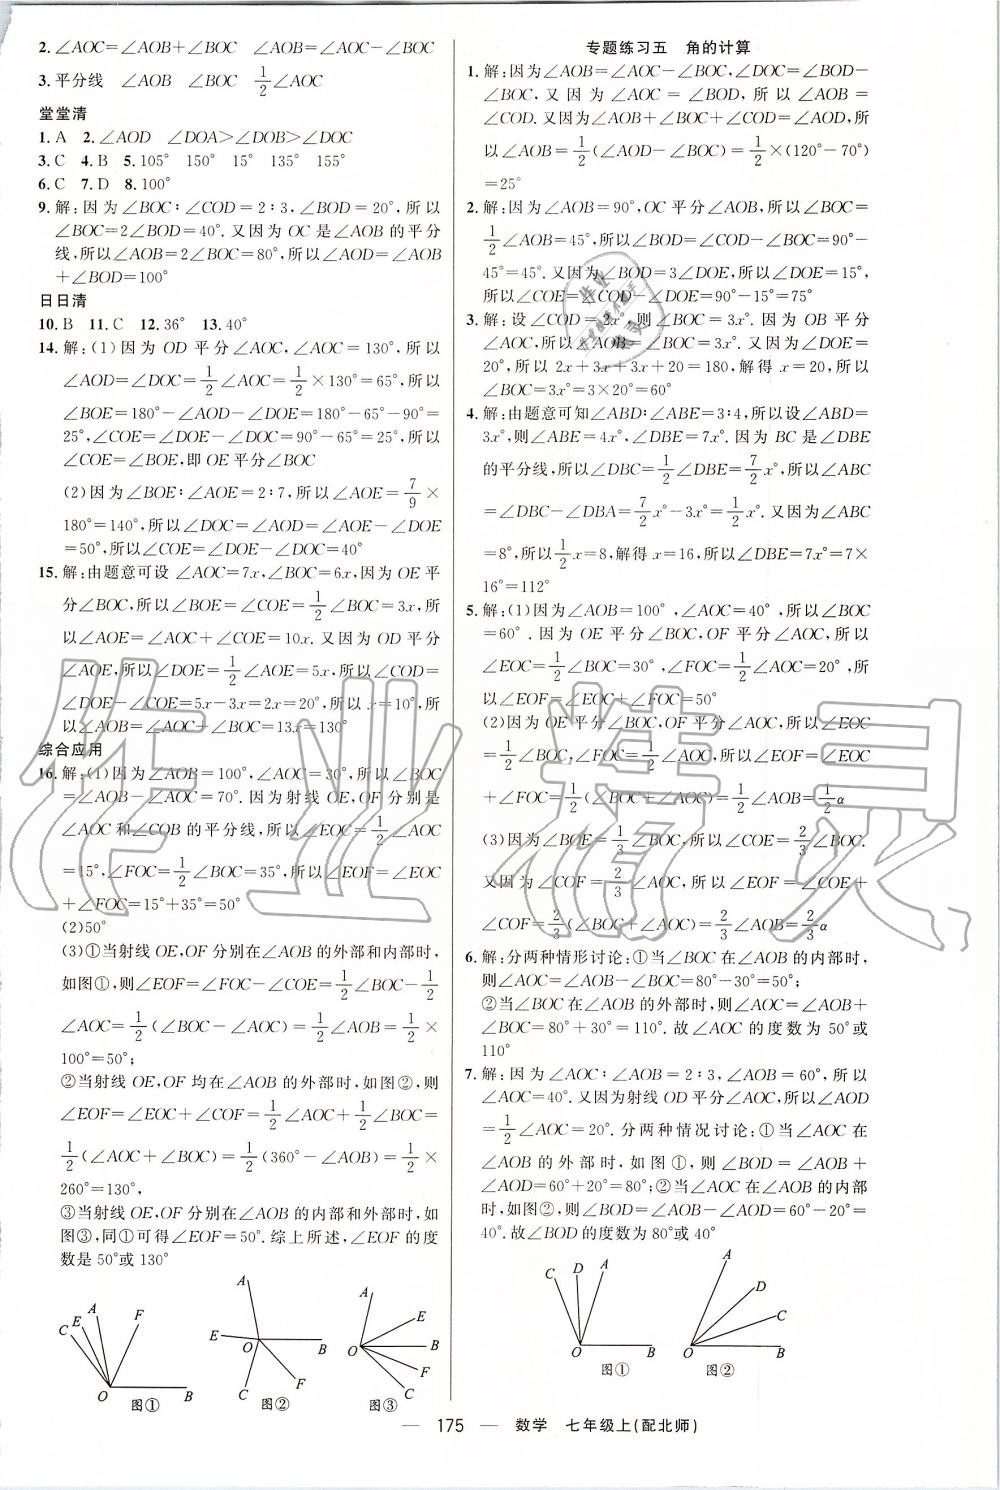 2. ∠AOC=∠AOB+∠BOC　∠AOB=∠AOC-∠BOC
3. 平分线　∠AOB　∠BOC　1/2∠AOC
堂堂清
1. A　2. ∠AOD　∠DOA>∠DOB>∠DOC
3. C　4. B　5. 105°　150°　15°　135°　155°
6. C　7. D　8. 100°
9. 解:因为∠BOC∶∠COD=2∶3,∠BOD=20°,所以
∠BOC=2∠BOD=40°.又因为OC是∠AOB的平分
线,所以∠AOB=2∠BOC=80°,所以∠AOD=∠AOB
+∠BOD=100°
日日清
10. B　11. C　12. 36°　13. 40°
14. 解:(1)因为OD平分∠AOC,∠AOC=130°,所以
∠AOD=∠DOC=1/2∠AOC=1/2×130°=65°,所以
∠BOE=180°-∠AOD-∠DOE=180°-65°-90°=
25°,∠COE=∠DOE-∠DOC=90°-65°=25°,所以
∠COE=∠BOE,即OE平分∠BOC
(2)因为∠BOE∶∠AOE=2∶7,所以∠AOE=7/9×
180°=140°,所以∠DOC=∠AOD=∠AOE-∠DOE
=50°,所以∠COE=∠DOE-∠DOC=40°
15. 解:由题意可设∠AOC=7x,∠BOC=6x,因为OE平
分∠BOC,所以∠BOE=∠COE=1/2∠BOC=3x,所
以∠AOE=∠AOC+∠COE=10x.又因为OD平分
∠AOE,所以∠DOE=1/2∠AOE=5x,所以∠COD=
∠DOE-∠COE=5x-3x=2x=20°,所以x=10°,所
以∠AOB=∠AOC+∠BOC=13x=130°
综合应用
16. 解:(1)因为∠AOB=100°,∠AOC=30°,所以∠BOC
=∠AOB-∠AOC=70°.因为射线OE,OF分别是
∠AOC和∠COB的平分线,所以∠EOC=1/2∠AOC
=15°,∠FOC=1/2∠BOC=35°,所以∠EOF=∠EOC
+∠FOC=15°+35°=50°
(2)50°
(3)①当射线OE,OF分别在∠AOB的外部和内部时,
如图①,则∠EOF=∠FOC-∠COE=1/2∠BOC-1/2
∠AOC=1/2(∠BOC-∠AOC)=1/2∠AOB=1/2×
100°=50°;
②当射线OE,OF均在∠AOB的外部时,如图②,则
∠EOF=∠EOC+∠COF=1/2∠AOC+1/2∠BOC=
1/2(∠AOC+∠BOC)=1/2(360°-∠AOB)=1/2×
260°=130°,
③当射线OE,OF分别在∠AOB的内部和外部时,如
图③,同①可得∠EOF=50°.综上所述,∠EOF的度
数是50°或130°
C E A F O B 图①
A E O B C F 图②
A E O B F C 图③
专题练习五　角的计算
1. 解:因为∠AOB=∠AOC-∠BOC,∠DOC=∠BOD-
∠BOC,又因为∠AOC=∠BOD,所以∠AOB=
∠COD.又因为∠AOB+∠BOC+∠COD=∠AOD,所
以∠AOB=1/2(∠AOD-∠BOC)=1/2×(120°-70°)
=25°
2. 解:因为∠AOB=90°,OC平分∠AOB,所以∠BOC=
1/2∠AOB=45°,所以∠BOD=∠COD-∠BOC=90°-
45°=45°.又因为∠BOD=3∠DOE,所以∠DOE=15°,
所以∠COE=∠COD-∠DOE=90°-15°=75°
3. 解:设∠COD=2x°,则∠BOC=3x°.因为OB平分
∠AOC,所以∠AOB=∠BOC=3x°.又因为∠AOE=
20°,所以2x+3x+3x+20=180,解得x=20,所以
∠BOC=3x°=3×20°=60°
4. 解:由题意可知∠ABD∶∠ABE=3∶4,所以设∠ABD=
3x°,则∠ABE=4x°,∠DBE=7x°.因为BC是∠DBE
的平分线,所以∠DBC=1/2∠DBE=7/2x°,所以∠ABC
=∠DBC-∠DBA=7/2x°-3x°=1/2x°.又因为∠ABC
=8°,所以1/2x=8,解得x=16,所以∠DBE=7x°=7×
16°=112°
5. 解:(1)因为∠AOB=100°,∠AOC=40°,所以∠BOC
=60°.因为OE平分∠BOC,OF平分∠AOC,所以
∠EOC=1/2∠BOC=30°,∠FOC=1/2∠AOC=20°,所
以∠EOF=∠EOC+∠FOC=50°
(2)因为OE平分∠BOC,OF平分∠AOC,所以∠EOC
=1/2∠BOC,∠FOC=1/2∠AOC,所以∠EOF=∠EOC
+∠FOC=1/2(∠BOC+∠AOC)=1/2∠AOB=1/2α
(3)因为∠BOE=1/3∠BOC,所以∠COE=2/3∠BOC.
又因为∠COF=2/3∠AOC,所以∠EOF=∠COE+
∠COF=2/3(∠BOC+∠AOC)=2/3∠AOB=2/3α
6. 解:分两种情形讨论:①当∠BOC在∠AOB的内部时,
则∠AOC=∠AOB-∠BOC=80°-30°=50°;
②当∠BOC在∠AOB的外部时,则∠AOC=∠AOB+
∠BOC=80°+30°=110°.故∠AOC的度数为50°或
110°
7. 解:因为∠AOC∶∠AOB=2∶3,∠AOB=60°,所以
∠AOC=40°.又因为射线OD平分∠AOC,所以∠AOD
=1/2∠AOC=20°.分两种情况讨论:①当∠AOC在
∠AOB的外部时,如图①,则∠BOD=∠AOB+
∠AOD=60°+20°=80°;②当∠AOC在∠AOB的内部
时,如图②,则∠BOD=∠AOB-∠AOD=60°-20°=
40°.故∠BOD的度数为80°或40°
C D A O B 图①
A D C O B 图②
作业精灵
— 175 —　数学　七年级上(配北师)